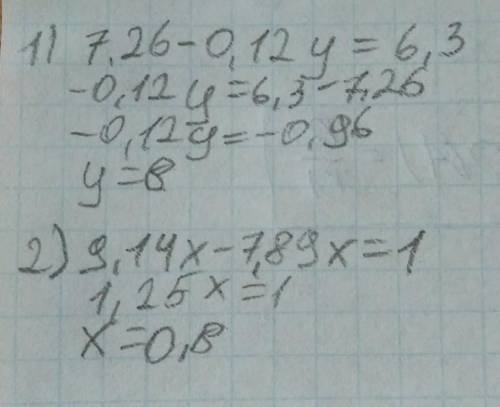 1) 7,26-0,12y=6,3
-0,12y=6,3-7,26
-0,12y=-0,96
y=8
2) 9,14x-7,89x=1
1,25x=1
x=0,8